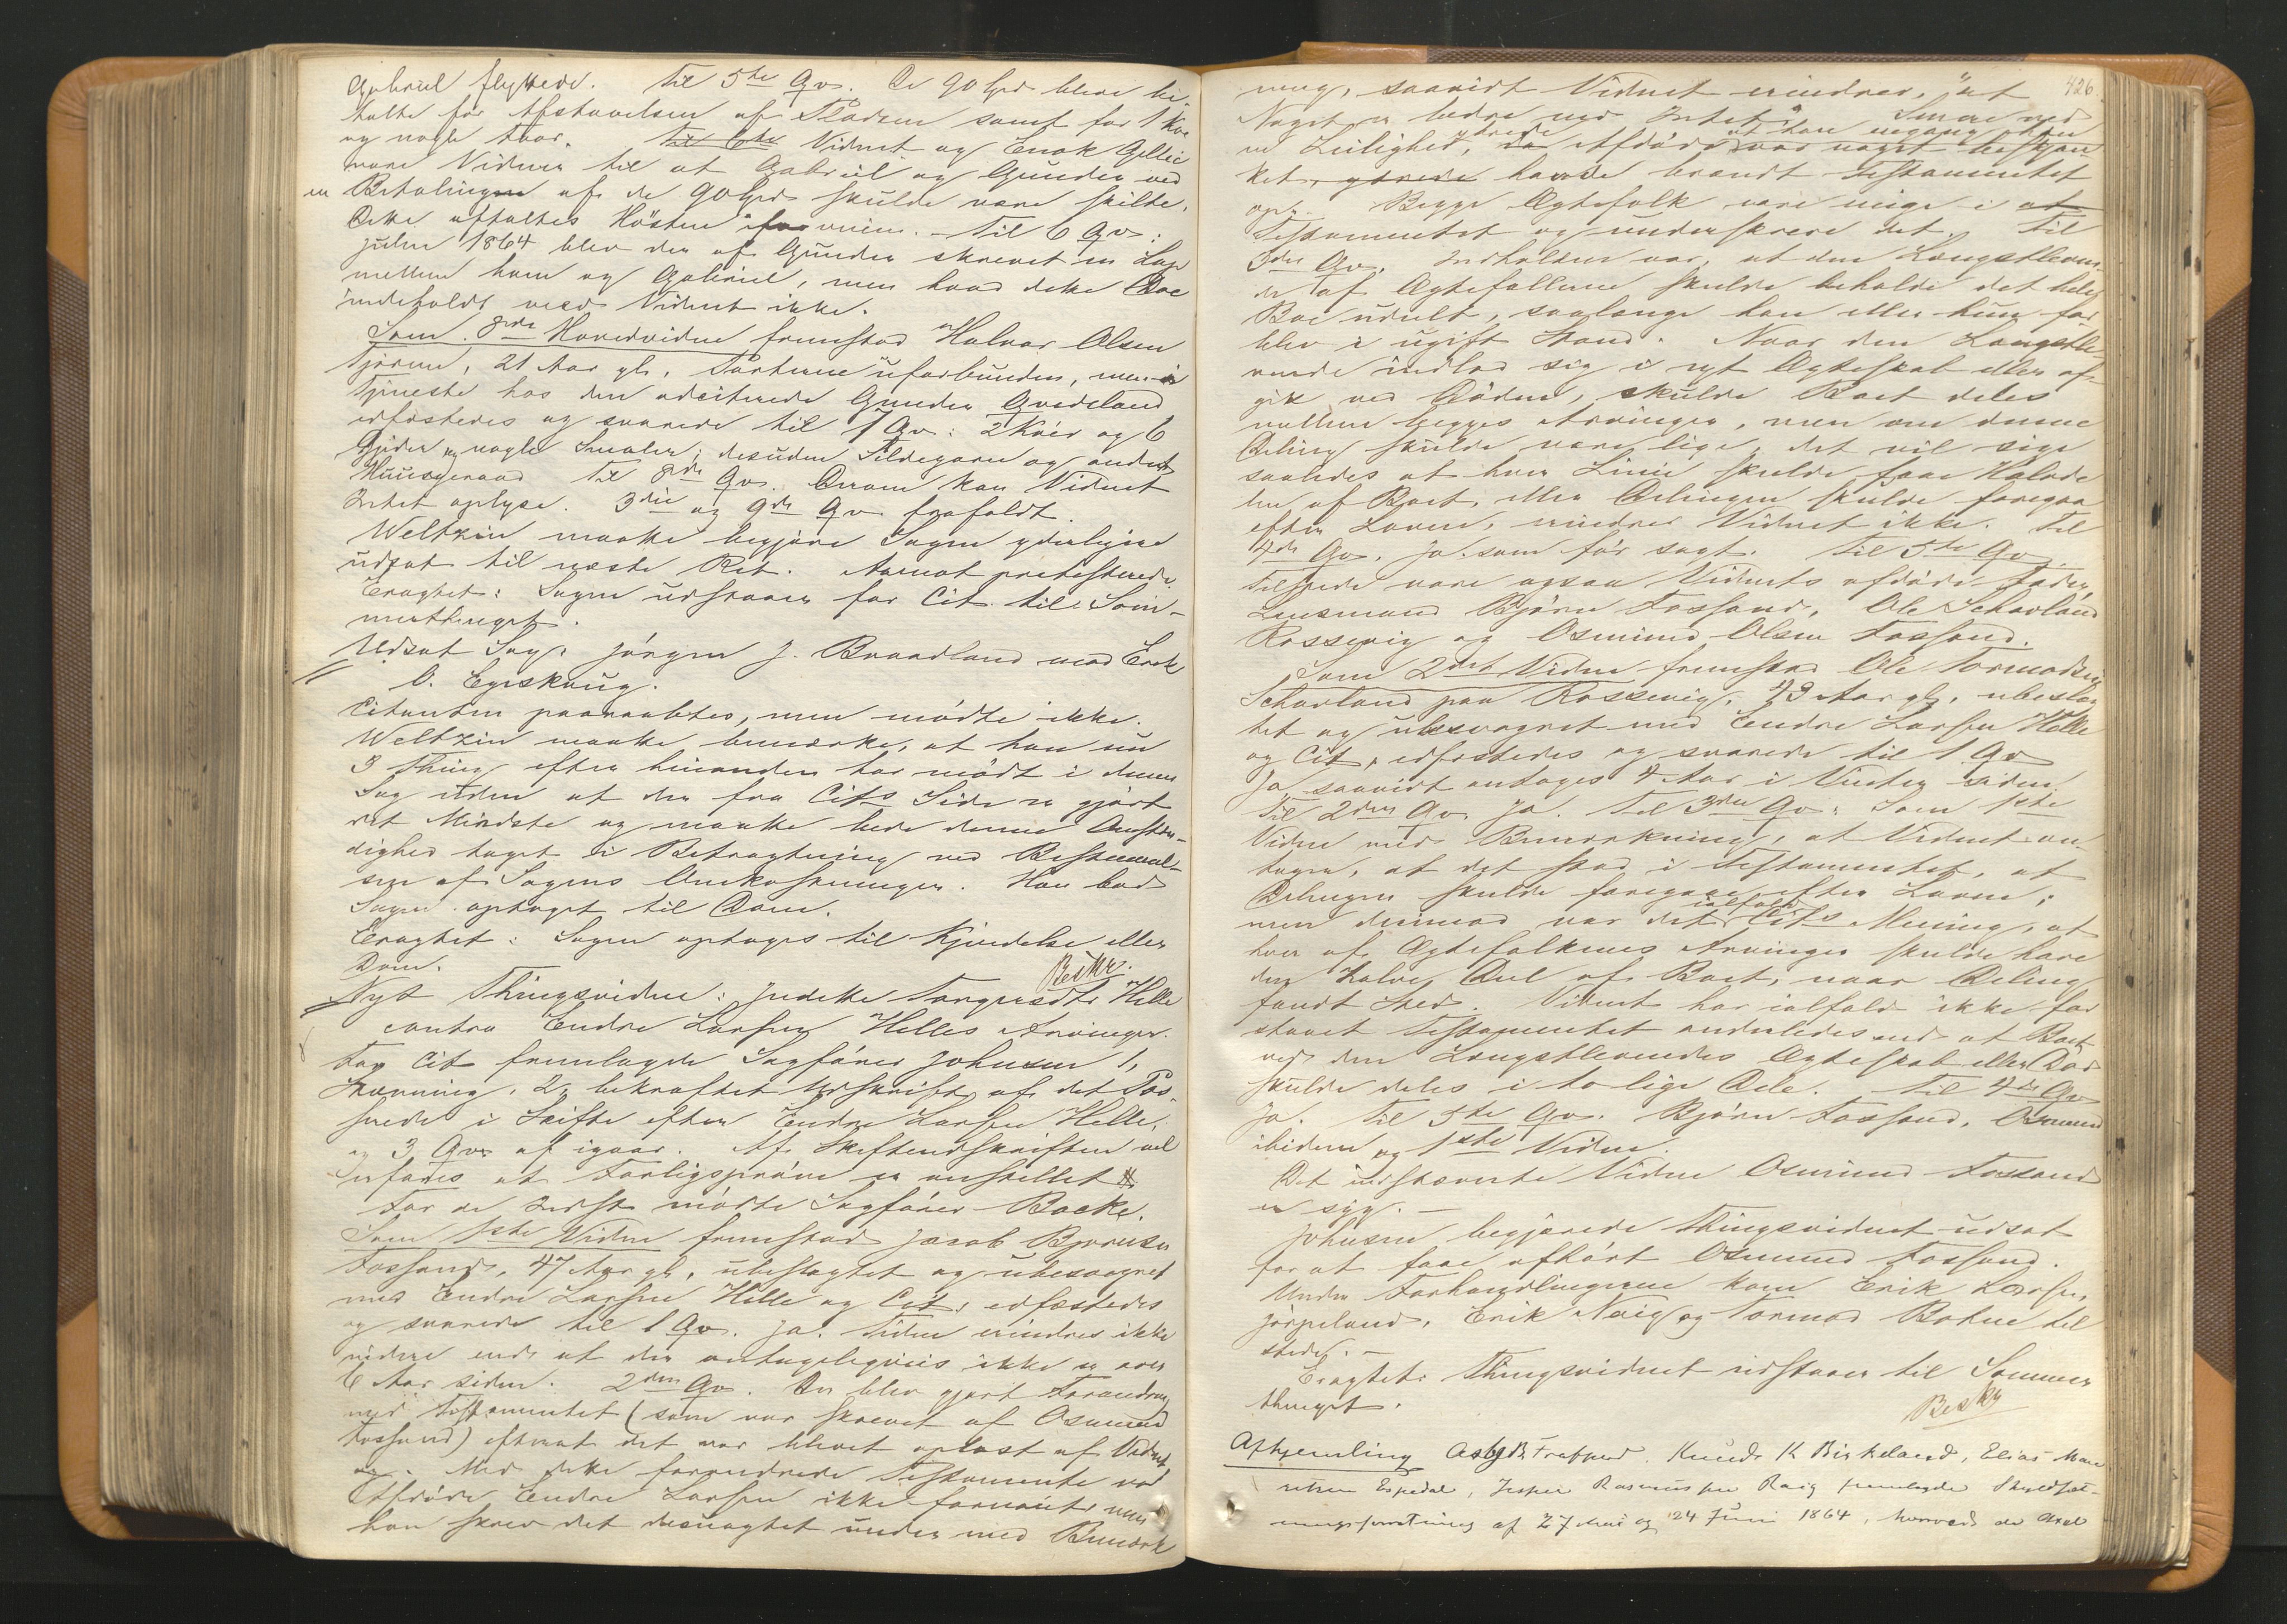 Gabriel flyttede. Til 5te Qv. De 90 Spd bleve be-
talte for Afstaaelsen af Pladsen samt for 1 Koe
og nogle Faar. Til 6te Vidnet og Enok Gellie
vare Vidner til at Gabriel og Gunder ved
en Betalingen af de 90 Spd skulde være skilte.
Dette aftaltes Høsten iforveien. Til 6 Qv:
Julen 1864 blev der af Gunder skrevet en Lap
mellem ham og Gabriel, men hvad dette Doc
indeholdt veed Vidnet ikke.
Som 8de Hovedvidne fremstod Halvor Olsen
Tjørne, 21 Aar gl., Parterne uforbunden, men i
Tjeneste hos den adciterede Gunder Qvedeland
edfæstedes og svarede til 7 Qv: 2 Kiør og 6
Gjeder og nogle Smaler; desuden Sildegarn og andet
Huusgeraad Til 8de Qv. Derom kan Vidnet
Intet oplyse. 3die og 9de Qv frafaldt.
Weltzin maatte begjære Sagen yderligere
udsat til næste Ret. Aarrot protesterede.
Eragtet: Sagen udstaaer for Cit. til Som-
merthinget.
Udsat Sag: Jørgen J. Braadland mod Enok
O. Egeskoug.
Citanten paaraabtes, men mødte ikke.
Weltzin maatte bemærke, at han nu
3 Thing efter hinanden har mødt i denne
Sag uden at der fra Cits Side er gjort
det Mindste og maatte bede denne Omstæn-
dighed taget i Betragtning ved Bestemmel-
sen af Sagens Omkostninger. Han bad
Sagen optaget til Dom.
Eragtet: Sagen optages til Kjendelse eller
Dom.
Beskr.
Nyt Thingsvidne: Indette Torgersdtr Helle
contra Endre Larsen Helles Arvinger.
For Cit fremlagde Sagfører Johnsen 1,
Stævning, 2, bekræftet Udskrift af det Pas-
serede i Skifte efter Endre Larsen Helle,
og 3 Qvr af igaar. Af Skifteudskriften vil
erfares at Forligsprøve er anstillet
For de Indst mødte Sagfører Backe.
Som 1ste Vidne fremstod Jacob Bjørnsen
Fossand, 47 Aar gl., ubeslægtet og ubesvogret
med Endre Larsen Helle og Cit, edfæstedes
og svarede til 1 Qv. Ja. Tiden erindres ikke
nøiere end at det antageligviis ikke er over
6 Aar siden. 2den Qv. Der blev gjort Forandring
ved Testamentet (som var skrevet af Osmund
Fossand) efterat det var blevet oplæst af Vidnet
Med dette forandrede Testamente var
Afdøde Endre Larsen ikke fornøiet men
han skrev det desuagtet under med Bemærk
426.
ning, saavidt Vidnet erindrer, "at
Noget er bedre end Intet". Senere ved
en Leilighed, ytrede da Afdøde at han engang var noget beskjæn-
ket, ytrede havde brændt Testamentet
op. Begge Ægtefolk vare enige i at
Testamentet og underskreve det. Til
3die Qv. Indholdet var, at den Længstleven-
de af Ægtefællerne skulde beholde det hele
Boe udeelt, saalænge han eller hun for
blev i ugift Stand. Naar den Længstle-
vende indlod sig i nyt Ægteskab eller af-
gik ved Døden, skulde Boet deles
mellem begges Arvinger, men om denne
Deling skulde være lige, det vil sige
saaledes at hver Linie skulde faae Halvde
len af Boet, eller Delingen skulde foregaa
efter Loven, erindrer Vidnet ikke. Til
4de Qv. Ja. som før sagt. Til 5te Qv
Tilstede vare ogsaa Vidnets afdøde Fader
Lensmand Bjørn Fossand, Ole Schavland
Rossevig og Osmund Olsen Fossand.
Som 2det Vidne fremstod Ole Tormodsen
Schavland paa Rossevig, 43 Aar gl., ubeslæg
tet og ubesvogret med Endre Larsen Helle
og Cit, edfæstedes og svarede til 1 Qv
Ja saavidt antages 4 Aar i Vinter siden.
Til 2den Qv. Ja. Til 3die Qv: Som 1ste
Vidne med Bemærkning, at Vidnet an-
tager, at det stod i Testamentet, at
Delingen skulde foregaae efter Loven;
men derimod var det ialfald Cits Mening, at
hver af Ægtefolkenes Arvinger skulde have
den halve Deel af Boet, naar Deling
fandt Sted. Vidnet har ialfald ikke for
staaet Testamentet anderledes end at Boet
ved den Længstlevendes Ægteskab eller Død
skulde deles i to lige Dele. Til 4de Qv
Ja. Til 5te Qv. Bjørn Fossand, Osmund
ibidem og 1ste Vidne.
Det indstævnte Vidne Osmund Fossand
er syg.
Johnsen begjærede Thingsvidnet udsat
for at faae afhørt Osmund Fossand.
Under Forhandlingerne kom Erik Larsen
Jørpeland, Erik Naig og Tormod Bohne til
stede.
Eragtet: Thingsvidnet udstaaer til Sommer
thinget.
Beskr
Afhjemling Asbj. B. Træpped. Knud K Birkeland, Elias Mau
ritsen Espedal, Jesper Rasmussen Raig fremlagde Skyldsæt-
ningsforretning af 27 Mai og 24 Juni 1864, hvorved de Axel